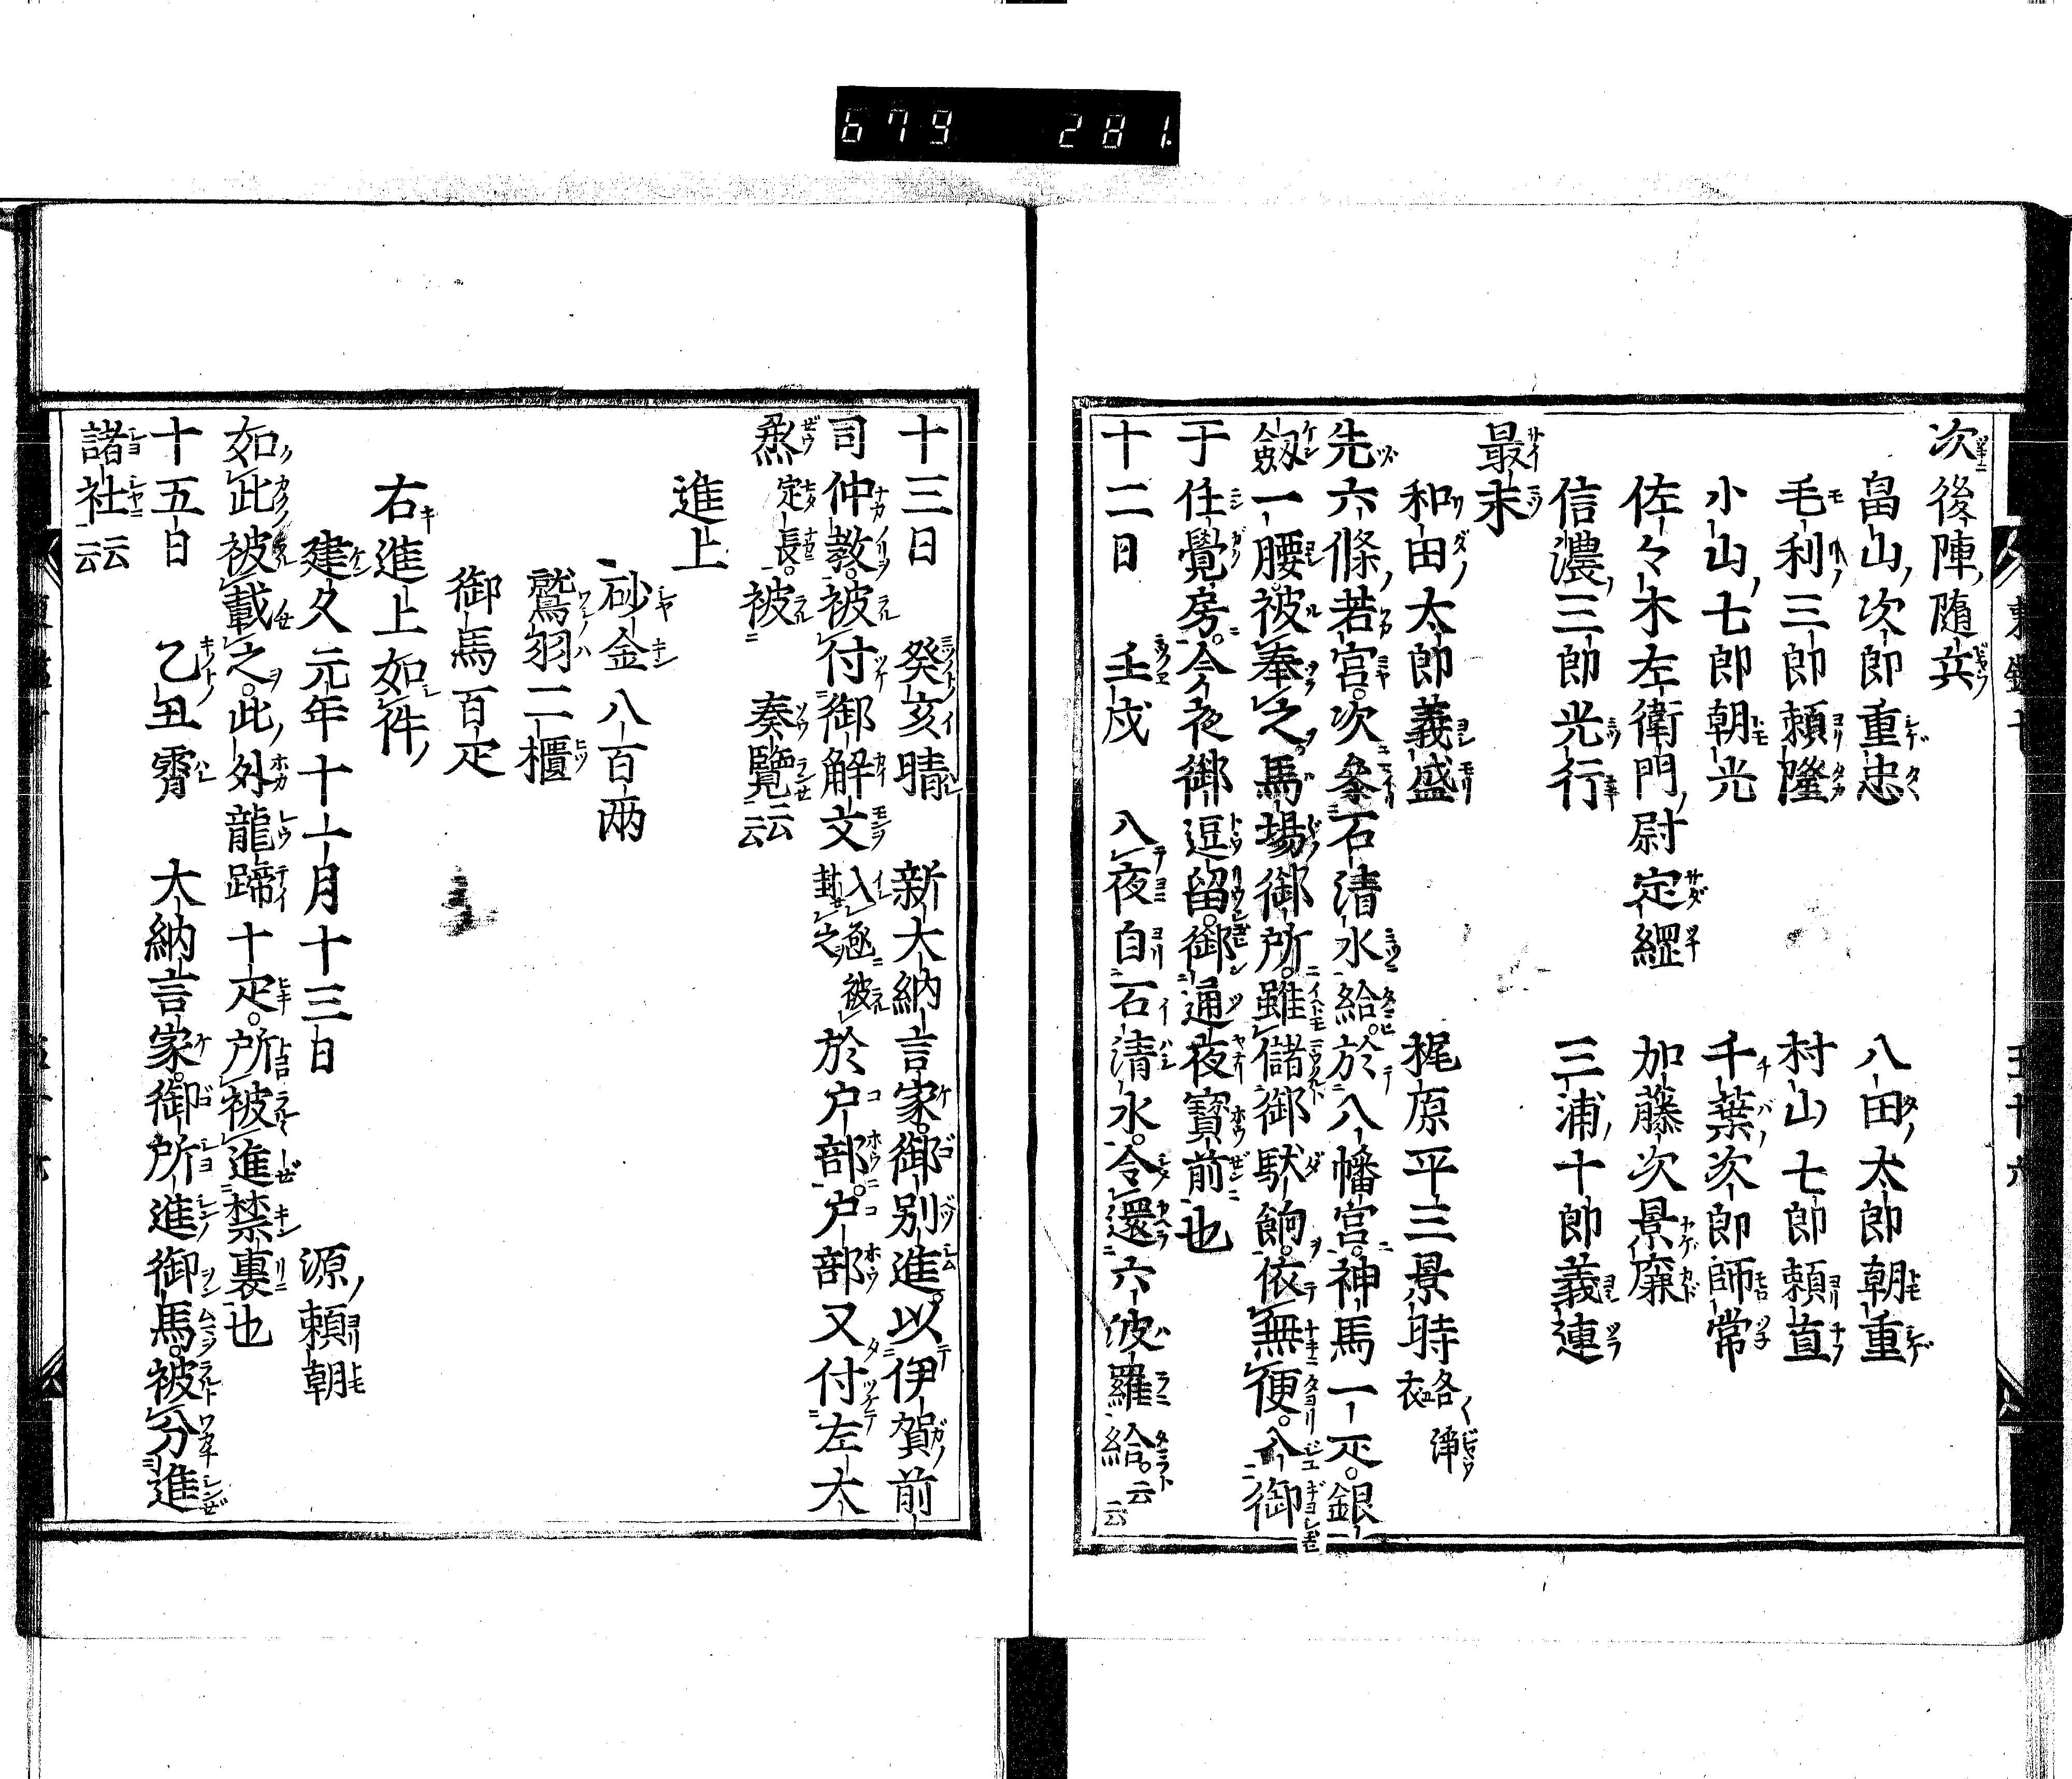 679 281.
次後陣随兵
畠山次郎重忠 八田太郎朝重
毛利三郎頼隆 村山七郎頼直
小山七郎朝光 千葉次郎師常
佐々木左衛門尉定綱 加藤次景廉
信濃三郎光行 三浦十郎義連
最末
和田太郎義盛 梶原平三景時
先六條若宮。次参石清水給。於八幡宮。神馬一疋。銀
劔一腰。被奉之。馬場御所。雖儲御駄餉。依無便。入御
于任覺房。今夜御逗留。御通夜寳前也
十二日 壬戌 入夜自石清水。令還六波羅給。云云
十三日 癸亥晴 新大納言家。御別進。以伊賀前
司仲教。被付御解文入函被封之於戸部。戸部又付左大
烝定長。被 奏覽云云
進上
砂金八百兩
鷲羽二櫃
御馬百疋
右進上如件
建久元年十一月十三日 源頼朝
如此被載之。此外龍蹄十疋。所被進禁裏也
十五日 乙丑霽 大納言家。御所進御馬。被分進
諸社云云